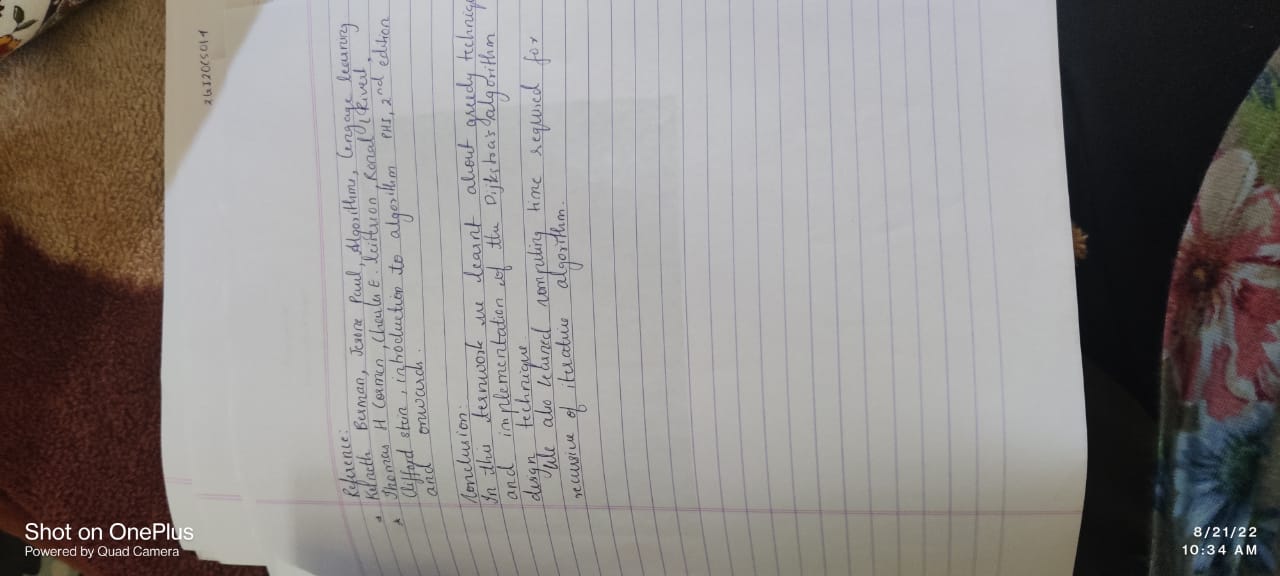 Shot on OnePlus
Powered by Quad Camera
2GI20CS014
Reference:
* Kenneth Berman, Jerone Paul, Algorithms, Cengage learning
* Thomas H Cormen, Charles E. leiterson, Ronal L Rivert,
Clifford stein, introduction to algorithm PHI, 2nd edition
and onwards.
Conclusion:
In this termwork we learnt about greedy technique
and implementation of the Dijkstra's algorithm
design technique.
We also learned computing time required for
recursive of iterative algorithm.
8/21/22
10:34 AM